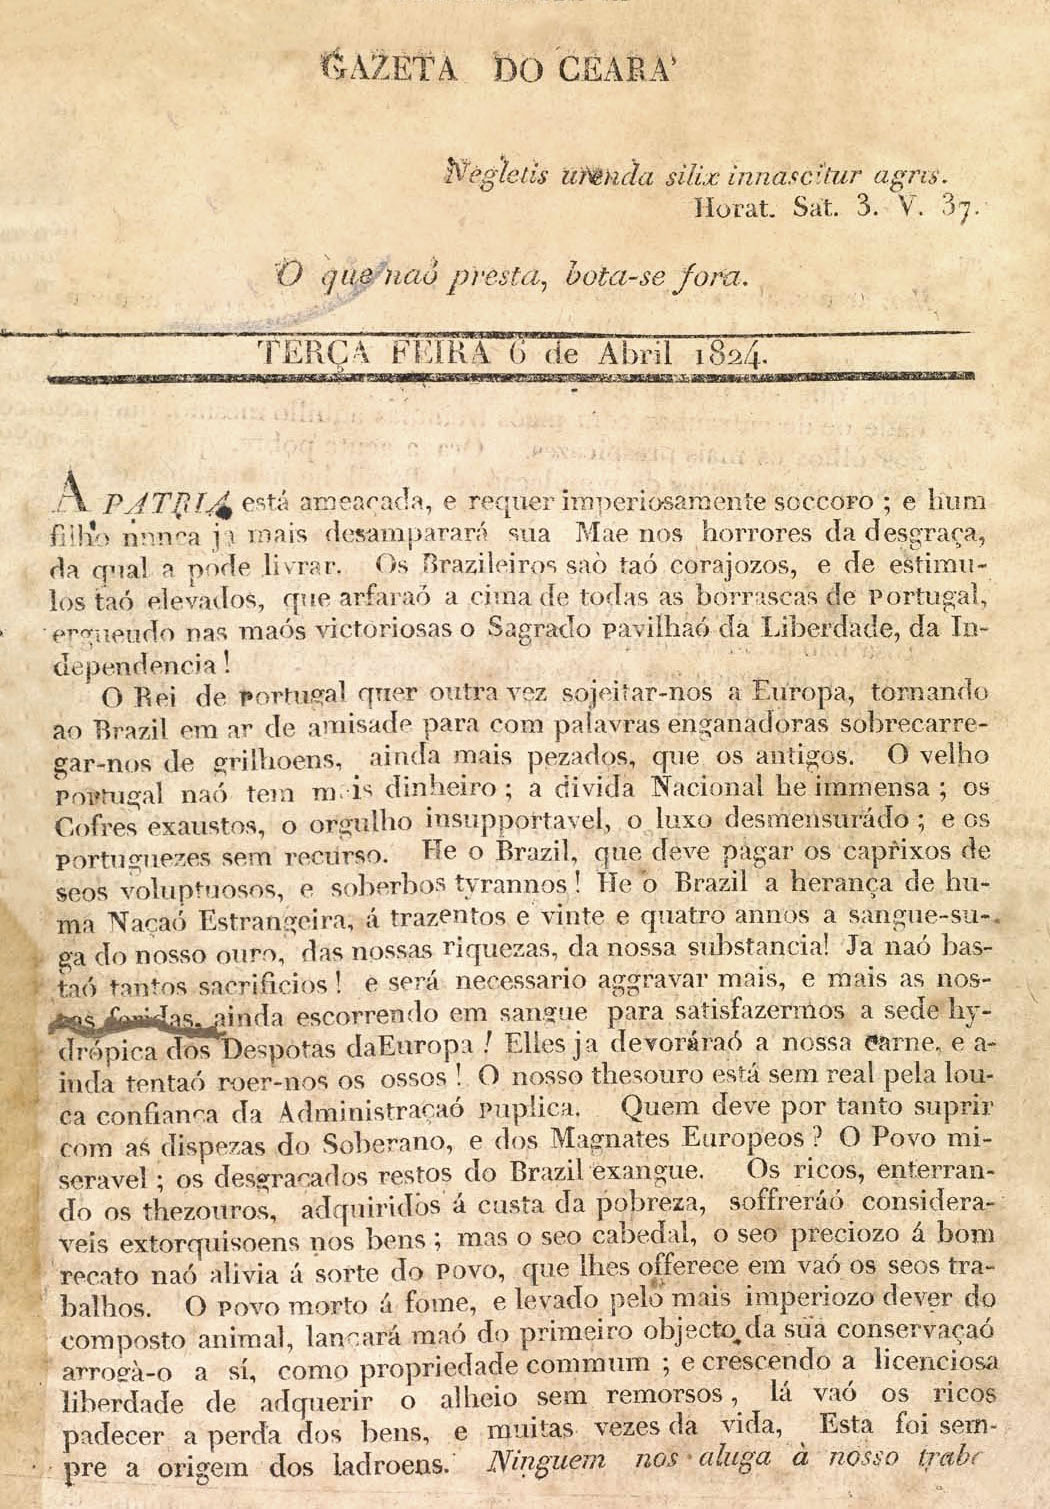 GAZETA DO CEARA'
Negletis urenda silix innascitur agris.
Horat. Sat. 3. V. 37.
O que naõ presta, bota-se fora.
TERÇA FEIRA 6 de Abril 1824.
A PATRIA está ameaçada, e requer imperiosamente soccoro ; e hum
filho nunca ja mais desamparará sua Mae nos horrores da desgraça,
da qual a pode livrar. Os Brazileiros saò taó corajozos, e de estimu-
los taó elevados, que arfaraó a cima de todas as borrascas de Portugal,
ergueudo nas maós victoriosas o Sagrado pavilhaó da Liberdade, da In-
dependencia !
O Rei de portugal quer outra vez sojeitar-nos a Europa, tornando
ao Brazil em ar de amisade para com palavras enganadoras sobrecarre-
gar-nos de grilhoens, ainda mais pezados, que os antigos. O velho
Portugal naó tem mais dinheiro ; a divida Nacional he immensa ; os
Cofres exaustos, o orgulho insupportavel, o luxo desmensurádo ; e os
portuguezes sem recurso. He o Brazil, que deve pagar os caprixos de
seos voluptuosos, e soberbos tyrannos ! He o Brazil a herança de hu-
ma Naçaó Estrangeira, á trazentos e vinte e quatro annos a sangue-su-
ga do nosso ouro, das nossas riquezas, da nossa substancia! Ja naó bas-
taó tantos sacrificios ! e será necessario aggravar mais, e mais as nos-
sas feridas, ainda escorrendo em sangue para satisfazermos a sede hy-
drópica dos Despotas daEuropa ! Elles ja devoráraó a nossa carne, e a-
inda tentaó roer-nos os ossos ! O nosso thesouro está sem real pela lou-
ca confiança da Administraçaó puplica. Quem deve por tanto suprir
com as dispezas do Soberano, e dos Magnates Europeos ? O Povo mi-
seravel ; os desgraçados restos do Brazil exangue. Os ricos, enterran-
do os thezouros, adquiridos á custa da pobreza, soffreráó considera-
veis extorquisoens nos bens ; mas o seo cabedal, o seo preciozo á bom
recato naó alivia á sorte do Povo, que lhes offerece em vaó os seos tra-
balhos. O povo morto á fome, e levado pelo mais imperiozo dever do
composto animal, lancará maó do primeiro objecto da sua conservaçaó
arrogà-o a sí, como propriedade commum ; e crescendo a licenciosa
liberdade de adquerir o alheio sem remorsos, lá vaó os ricos
padecer a perda dos bens, e muitas vezes da vida, Esta foi sem-
pre a origem dos ladroens. Ninguem nos aluga à nosso